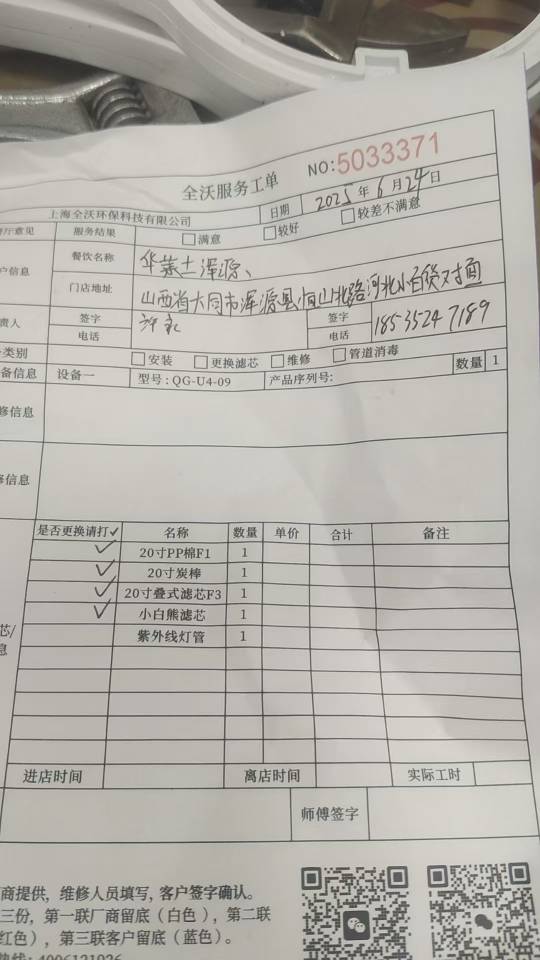 全沃服务工单 NO:5033371
上海全沃环保科技有限公司 日期 2025年6月24日
厅意见 服务结果 满意 较好 较差不满意
户信息 餐饮名称 华莱士浑源、
门店地址 山西省大同市浑源县恒山北路河北小百货对面
责人 签字 签字
电话 电话 18535247189
类别 安装 更换滤芯 维修 管道消毒
备信息 设备一 型号:QG-U4-09 产品序列号: 数量 1
修信息
修信息
是否更换请打✓ 名称 数量 单价 合计 备注
✓ 20寸PP棉F1 1
✓ 20寸炭棒 1
✓ 20寸叠式滤芯F3 1
✓ 小白熊滤芯 1
紫外线灯管 1
芯/
息
进店时间 离店时间 实际工时
师傅签字
商提供，维修人员填写，客户签字确认。
三份，第一联厂商留底（白色），第二联
红色），第三联客户留底（蓝色）。